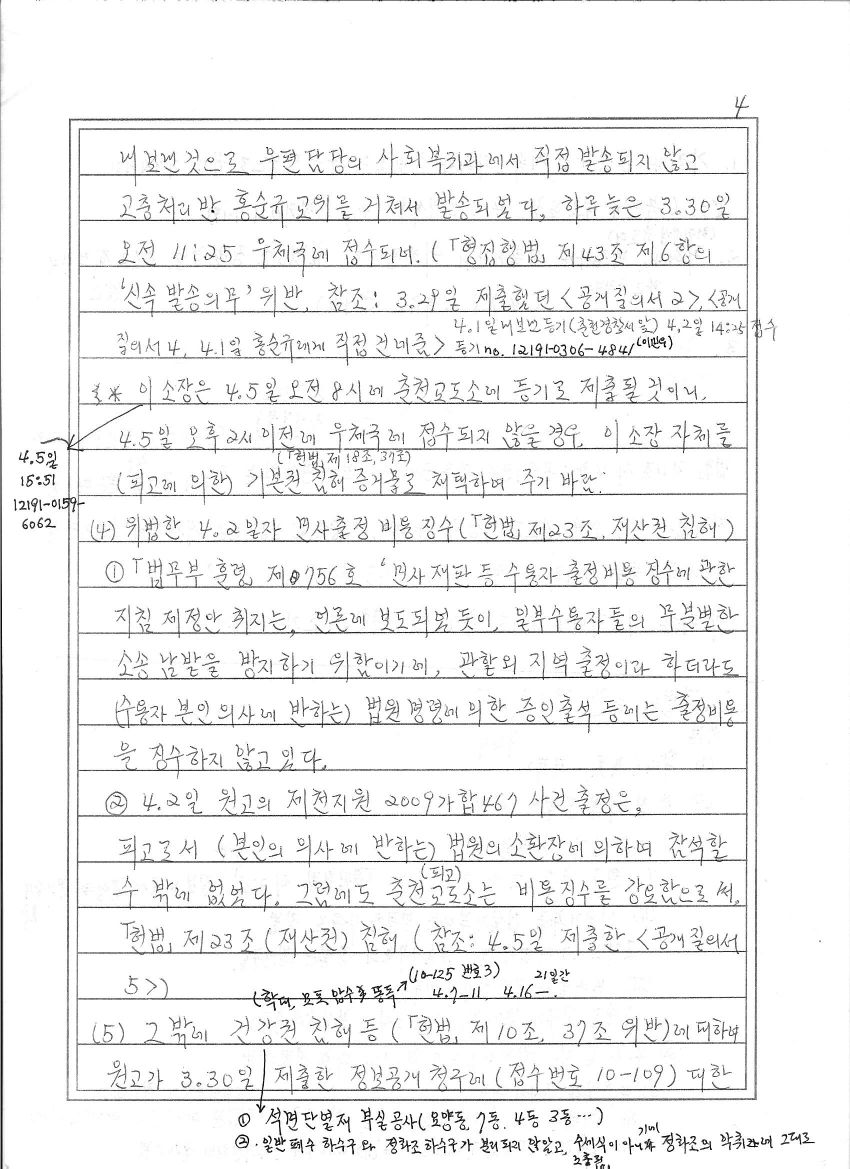 4
내보낸것으로 우편담당의 사회복귀과에서 직접 발송되지 않고
고충처리반 홍순규교위를 거쳐서 발송되었다. 하루 늦은 3.30일
오전 11:25 우체국에 접수되어. (「형집행법」 제43조 제6항의
'신속 발송의무' 위반, 참조: 3.29일 제출했던 <공개질의서 2>, <공개
4.1일 내보낸 등기(춘천경찰서 앞) 4.2일 14:25 접수
질의서 4, 4.1일 홍순규에게 직접 건네줌> 등기 no. 12191-0306-4841
※ 이 소장은 4.5일 오전 8시에 춘천교도소에 등기로 제출될 것이니,
4.5일 오후 2시 이전에 우체국에 접수되지 않을 경우, 이 소장 자체를
(「헌법」 제18조, 37조)
(피고에 의한) 기본권 침해 증거물로 채택하여 주기 바람.
4.5일
15:51
12191-0159-
6062
(4) 위법한 4.2일자 민사출정 비용 징수 (「헌법」 제23조, 재산권 침해)
① 「법무부 훈령」 제756호 '민사재판 등 수용자 출정비용 징수에 관한
지침 제정안 취지는, 언론에 보도되었듯이, 일부수용자들의 무분별한
소송 남발을 방지하기 위함이기에, 관할외 지역 출정이라 하더라도
(수용자 본인 의사에 반하는) 법원 명령에 의한 증인출석 등에는 출정비용
을 징수하지 않고 있다.
② 4.2일 원고의 제천지원 2009가합467 사건 출정은,
피고로서 (본인의 의사에 반하는) 법원의 소환장에 의하여 참석할
(피고)
수 밖에 없었다. 그럼에도 춘천교도소는 비용징수를 강요함으로써,
「헌법」 제23조 (재산권) 침해 (참조: 4.5일 제출한 <공개질의서
5>)
(10-125 번호3) 21일간
압수 4.7-11. 4.16-.
(5) 그 밖에 건강권 침해 등 (「헌법」 제10조, 37조 위반)에 대하여
원고가 3.30일 제출한 정보공개 청구에 (접수번호 10-109) 대한
① 석면단열재 부실공사 (요양동, 7동, 4동 3동…)
②. 일반폐수 하수구와 정화조 하수구가 분리되지 않았고, 수세식이 아닌 정화조의 악취 그대로